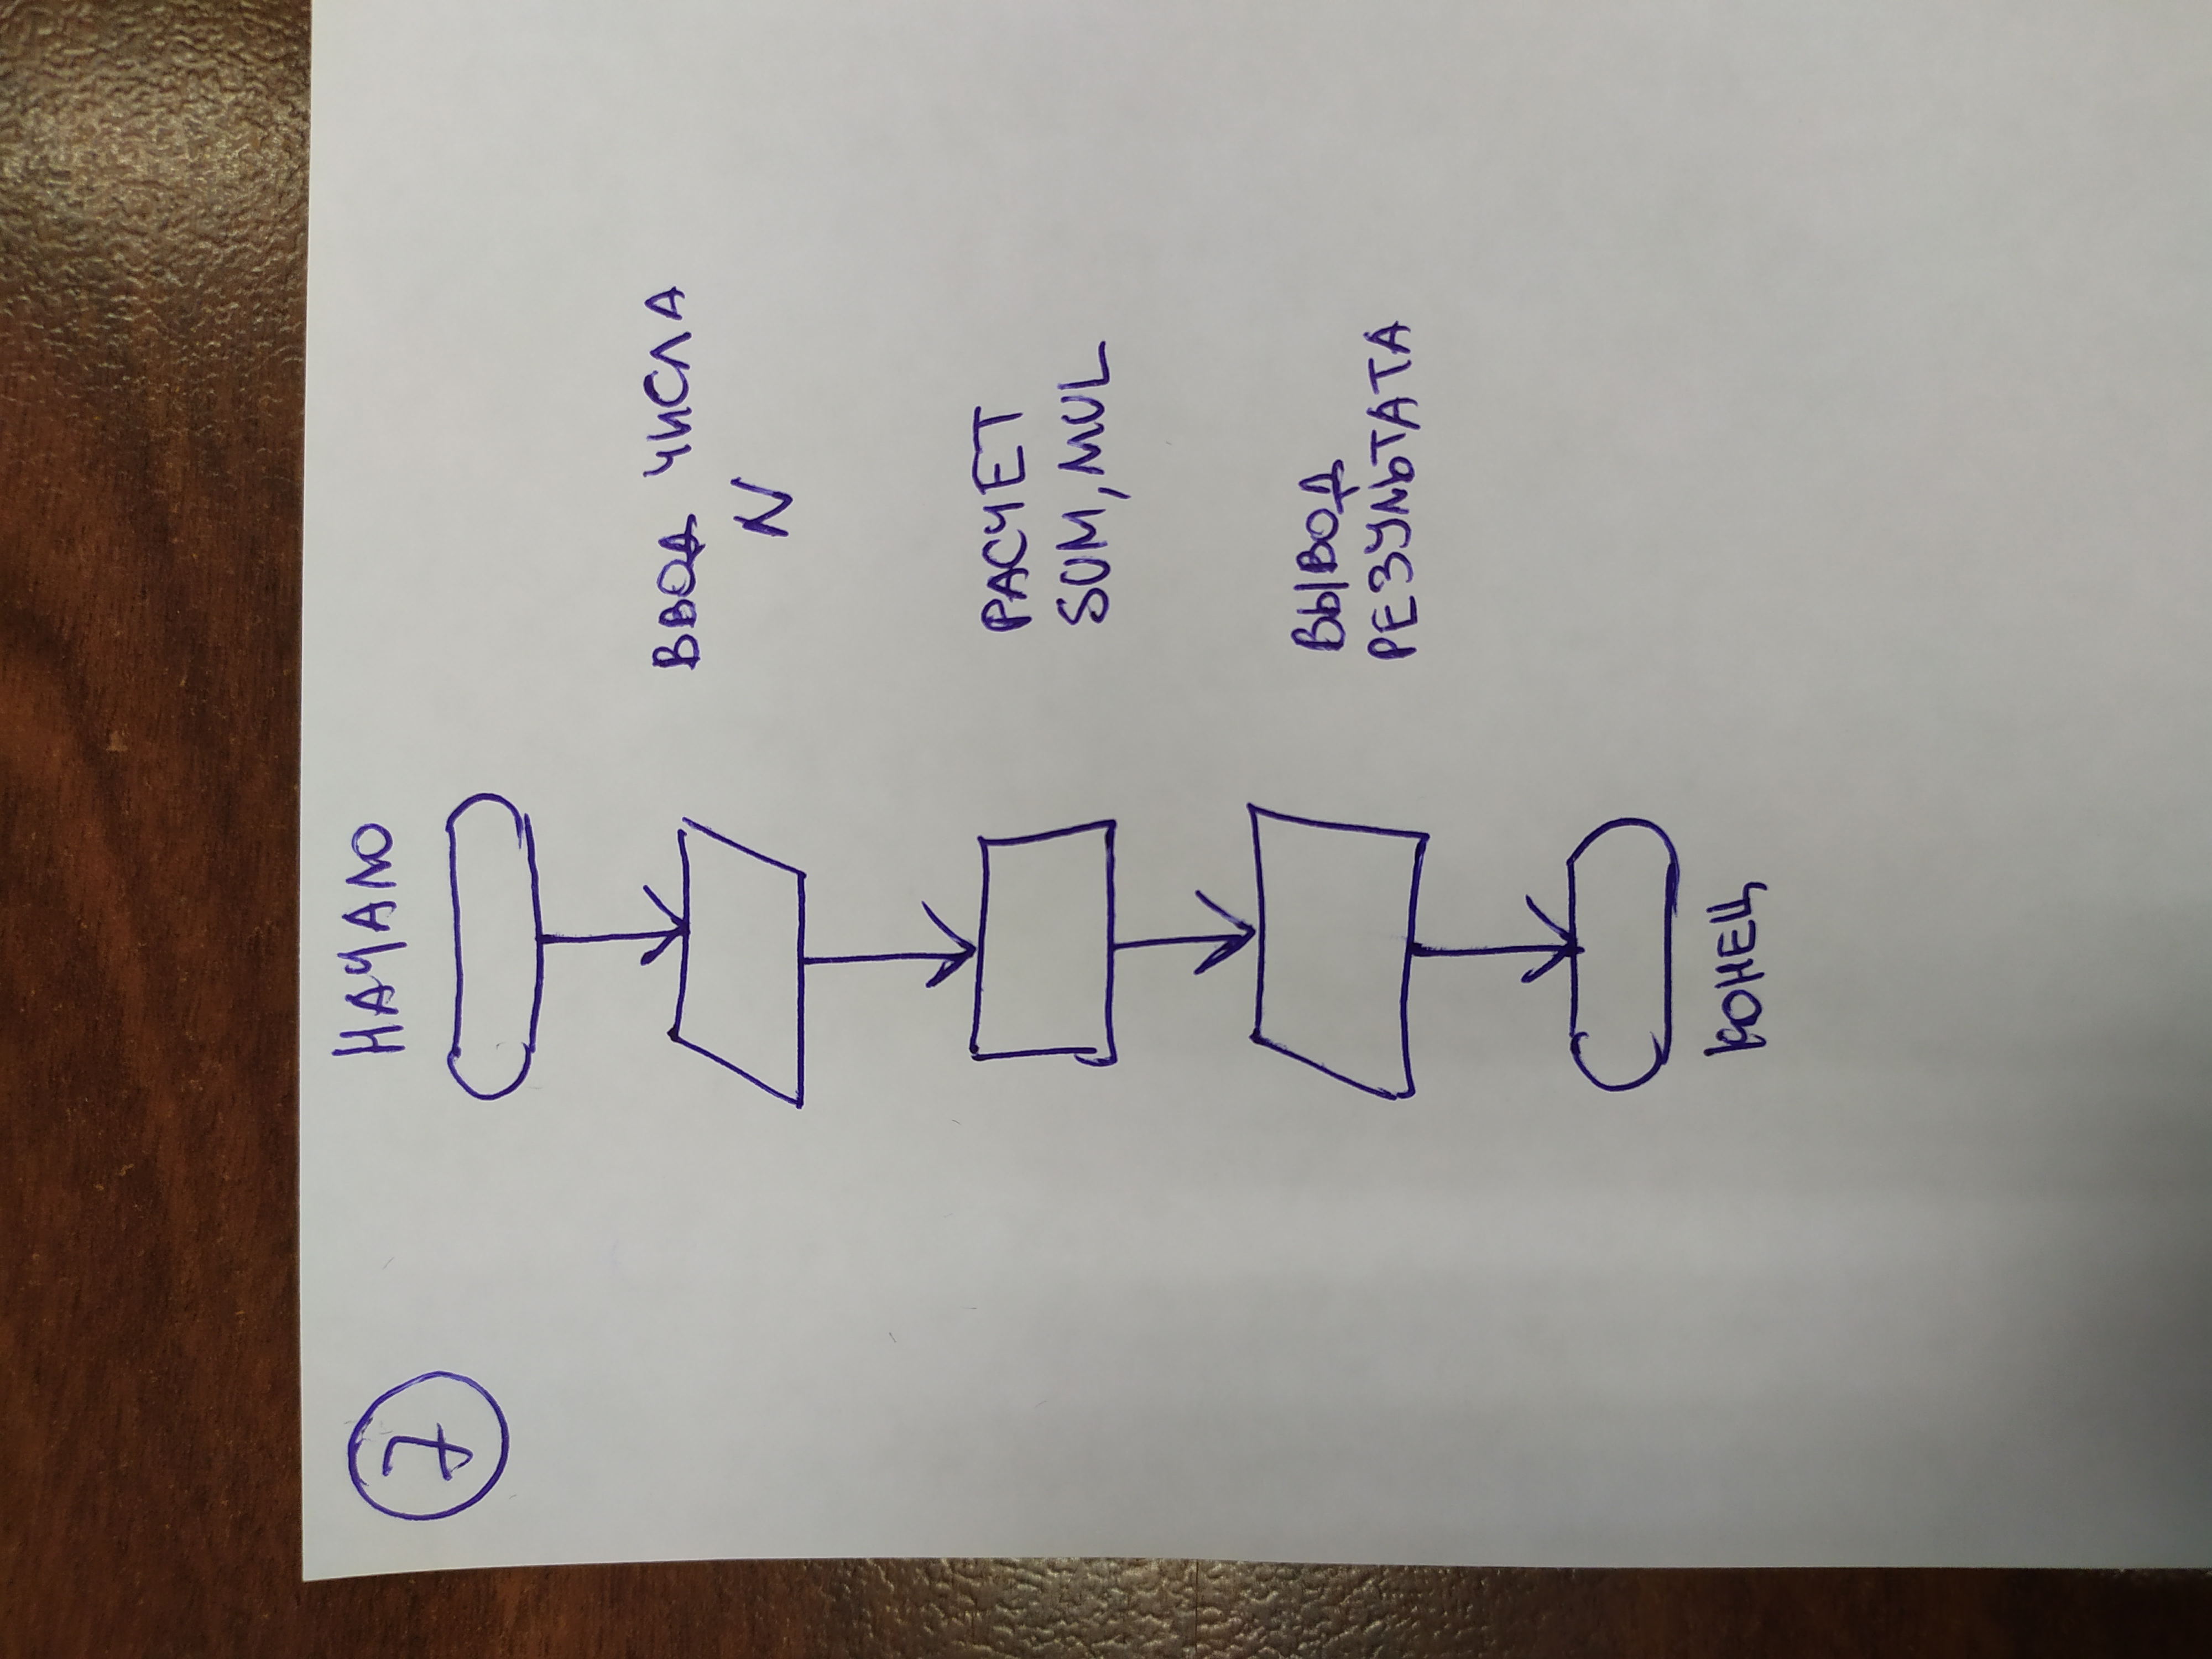 7
НАЧАЛО
ВВОД ЧИСЛА
N
РАСЧЕТ
SUM, MUL
ВЫВОД
РЕЗУЛЬТАТА
КОНЕЦ